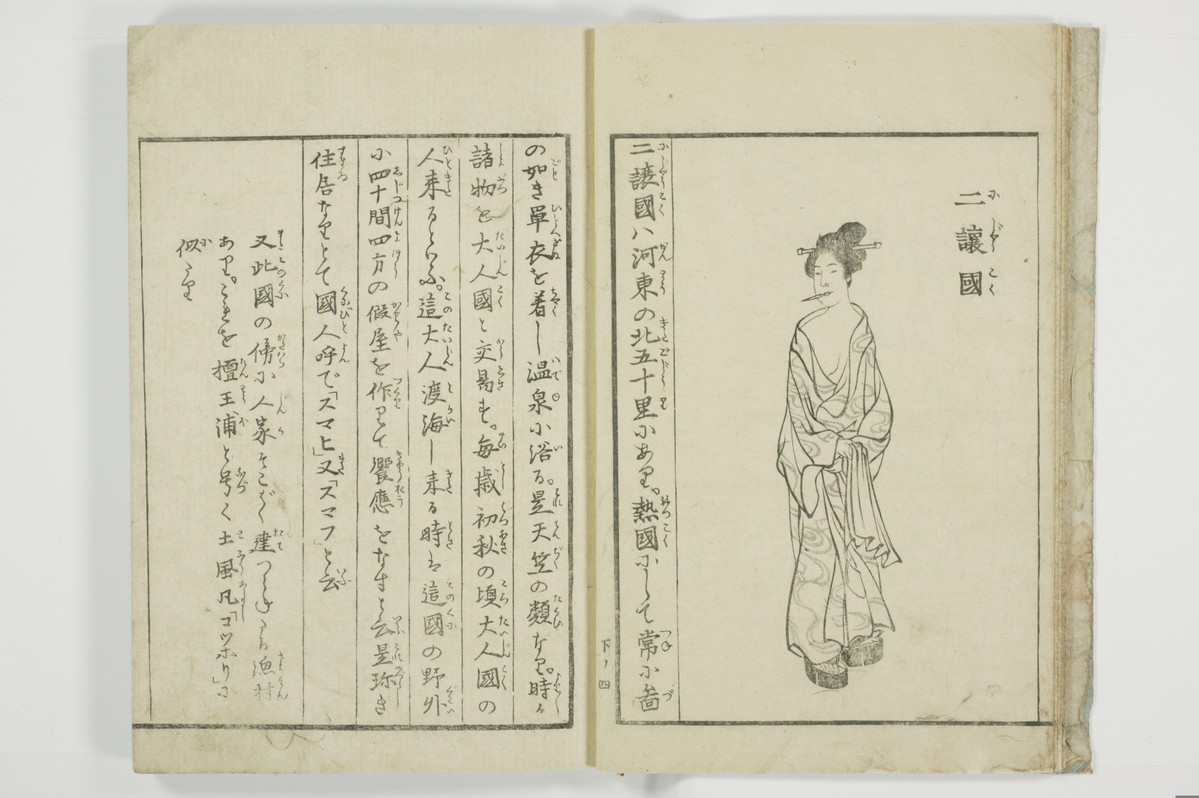 二讓國
二讓國ハ河東の北五十里にあり。熱國にして常に畵
下ノ四
の如き單衣を着し温泉に浴る。是天竺の類なり。時々
諸物を大人國と交易す。毎歳初秋の頃大人國の
人来るといふ。這大人渡海し来る時は這國の野外
に四十間四方の假屋を作りて饗應をなすと云是珎き
住居なりとて國人呼で「スマヒ」又「スマフ」と云
又此國の傍に人家そこばく建つらねたる漁村
あり。これを檀王浦と号く土風凡「コツ に
似たり